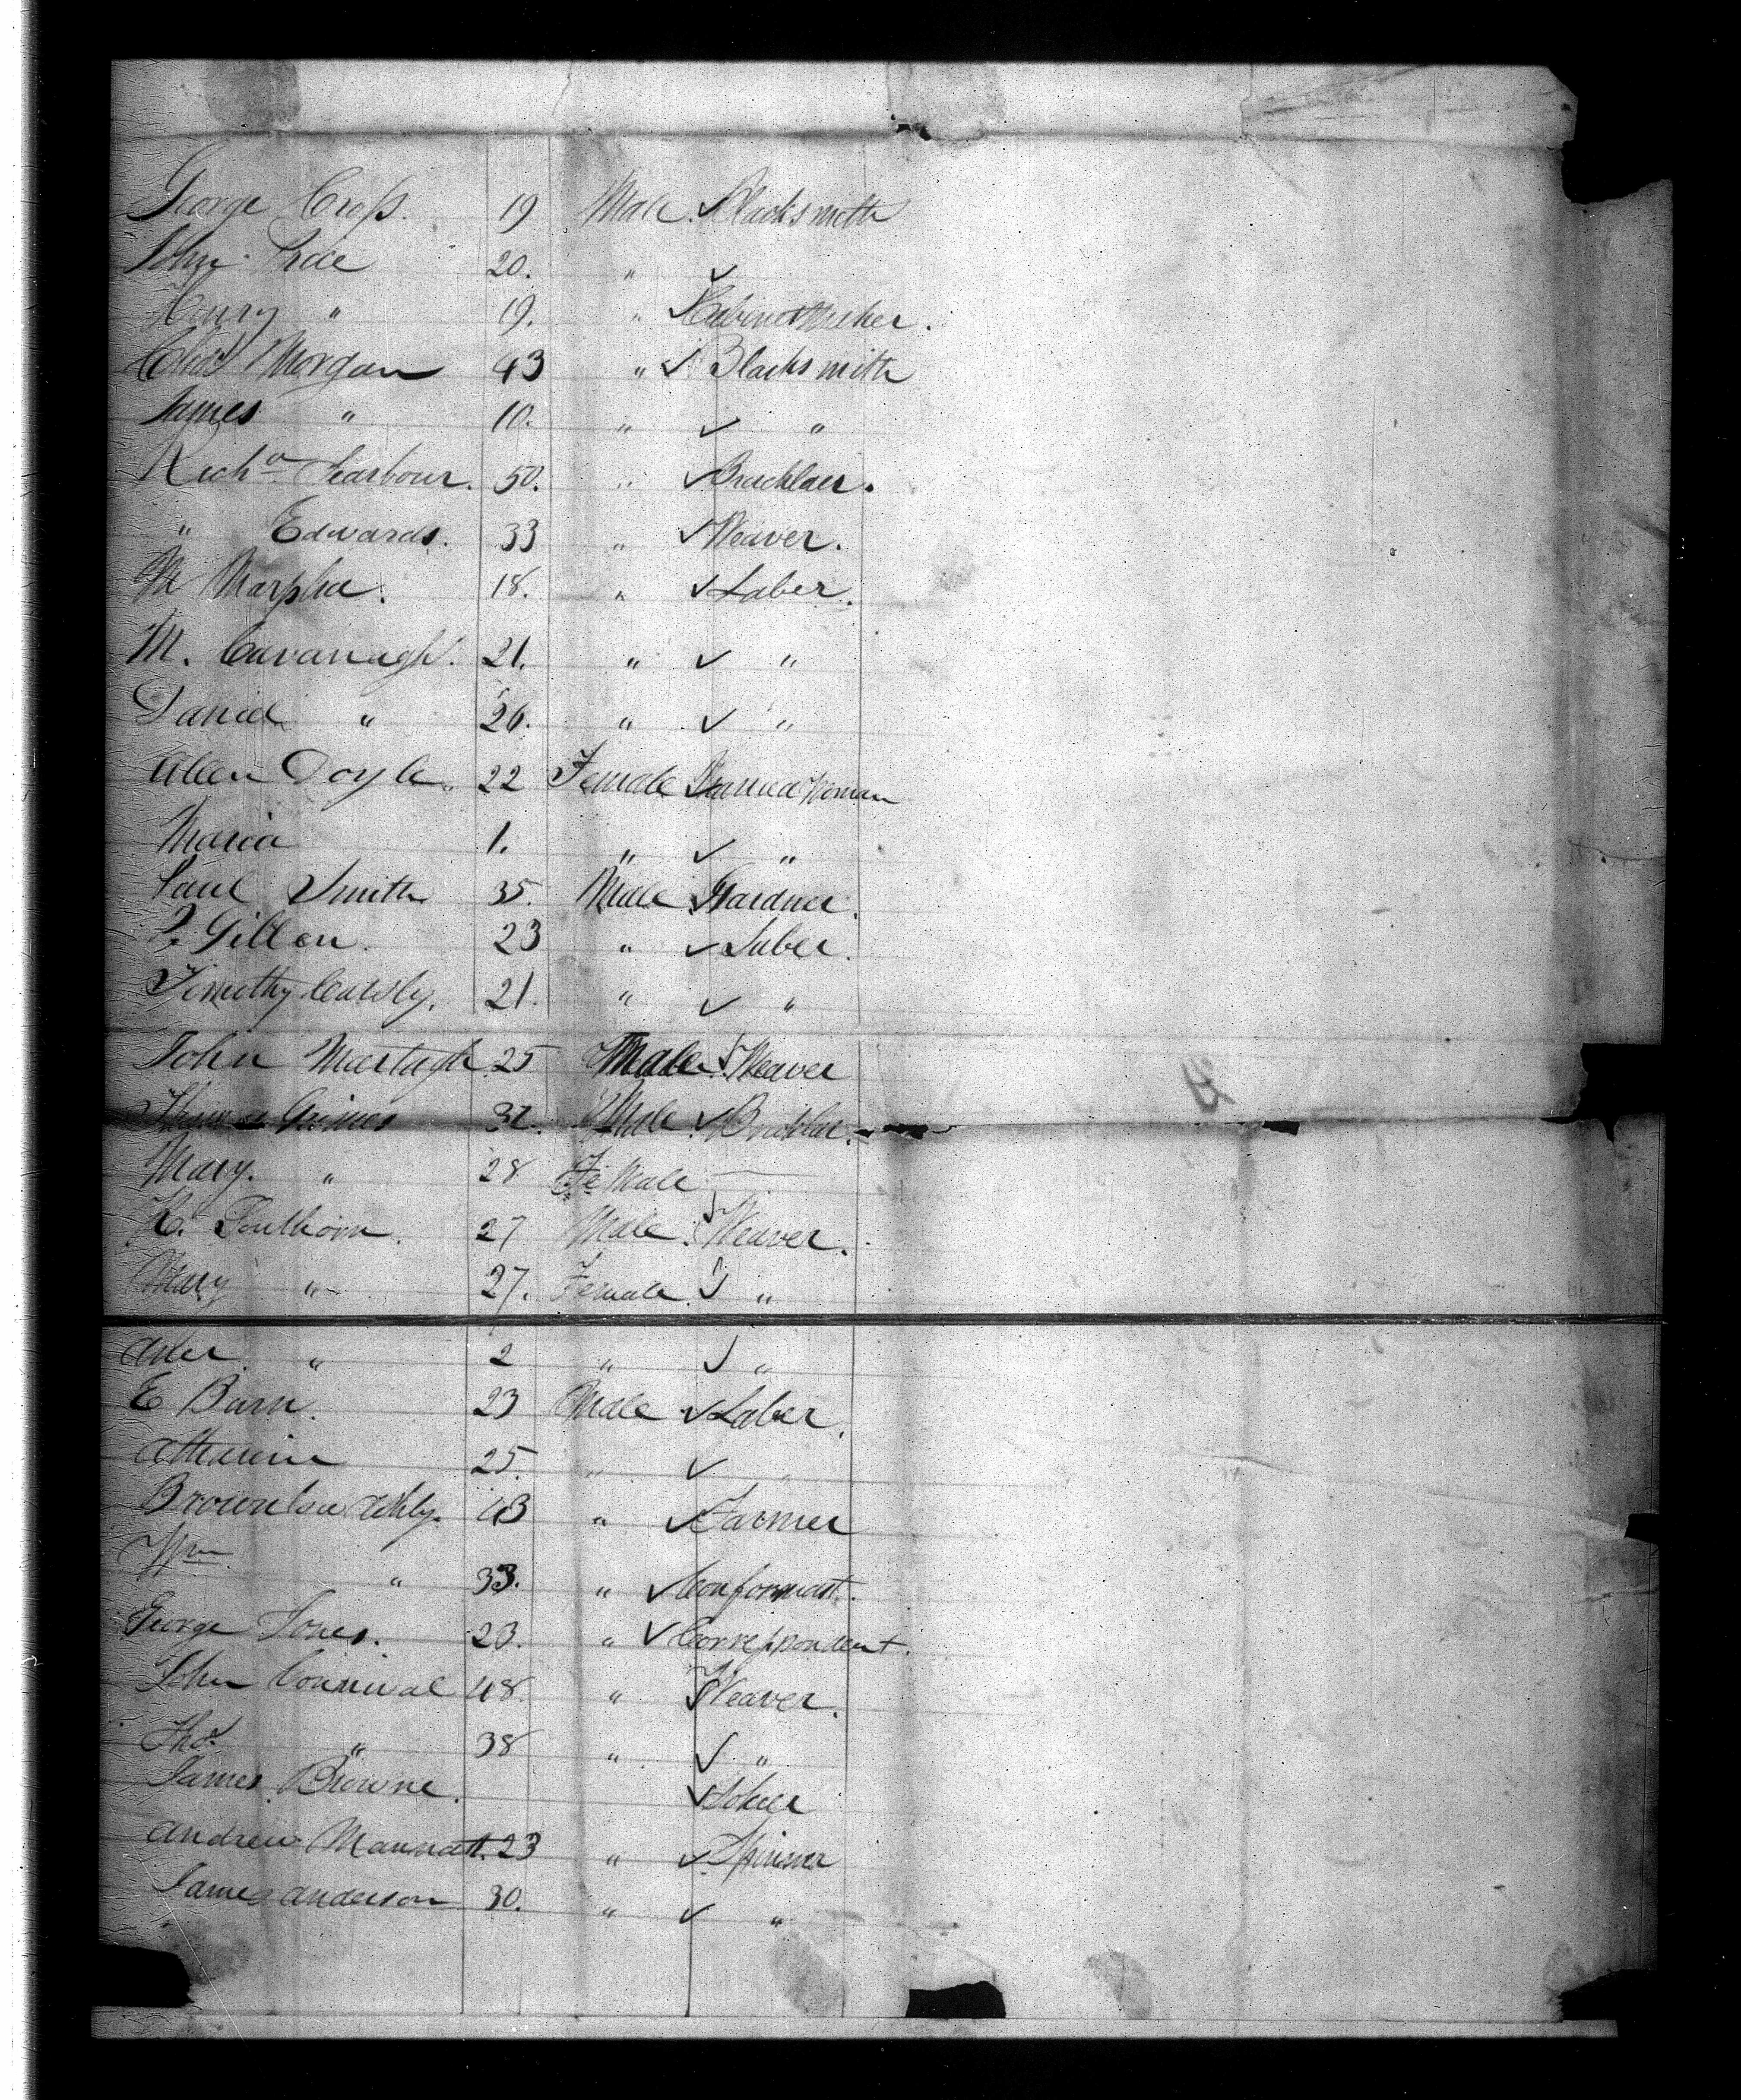 George Cross. 19 Male ✓ Blacksmith
John Price 20. " ✓
Henry " 19. " ✓ Cabinet Maker.
Chas Morgan 43 " ✓ Blacksmith
James " 10. " ✓ "
Richd Searbour. 50. " ✓ Bricklaer.
" Edwards. 33 " ✓ Weaver.
M Marpha. 18. " ✓ Laber.
M. Cavanagh. 21. " ✓ "
Daniel " 26. " ✓ "
Allen Doyle. 22 Female ✓ Married Woman
Maria 1. " ✓ "
Paul Smith 35. Male ✓ Gardner.
P. Gillen. 23 " ✓ Laber.
Timothy 21. " ✓ "
John Murtagh 25 Male ✓ Weaver
Grimes 32. Male ✓ Bricklaer.
Mary. " 28 FeMale
H. Southorn. 27 Male. ✓ Weaver.
Mary " 27. Female. ✓ "
" 2 " ✓ "
E Barn. 23 Male ✓ Laber.
25. " ✓ "
Brownlow Ashly. 43 " ✓ Farmer
Wm " 33. " ✓
George Jones. 23. " ✓ Correspondent.
John Connival 48. " ✓ Weaver.
Thos. " 38 " ✓ "
James Browne. ✓
Andrew 23 " ✓ Spinner
James Anderson 30. " ✓ "